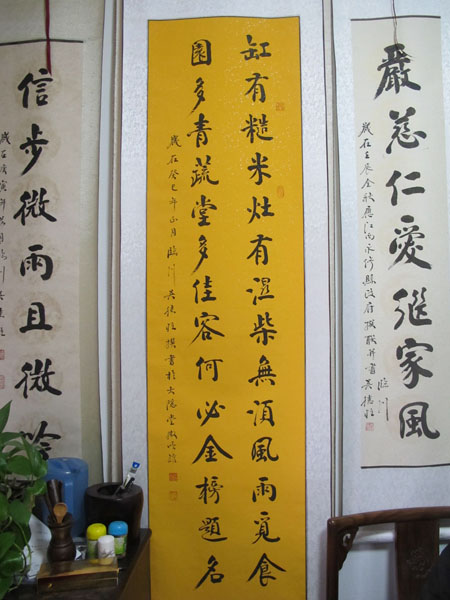 嚴慈仁愛继家風
歲在壬辰金秋應江西永修縣政府撰聯并書
臨川
缸有糙米灶有濕柴無須風雨覓食
園多青蔬堂多佳客何必金榜題名
歲在癸巳年正月臨川吳德撰書於大隱堂
信步微雨且微吟
歲在